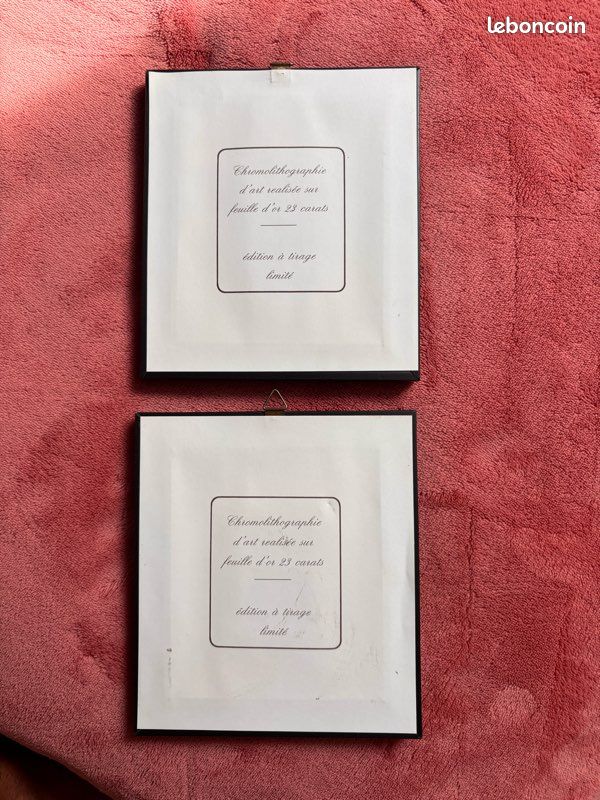 leboncoin
Chromolithographie
d'art realisée sur
feuille d'or 23 carats
édition à tirage
limité
Chromolithographie
d'art realisée sur
feuille d'or 23 carats
édition à tirage
limité